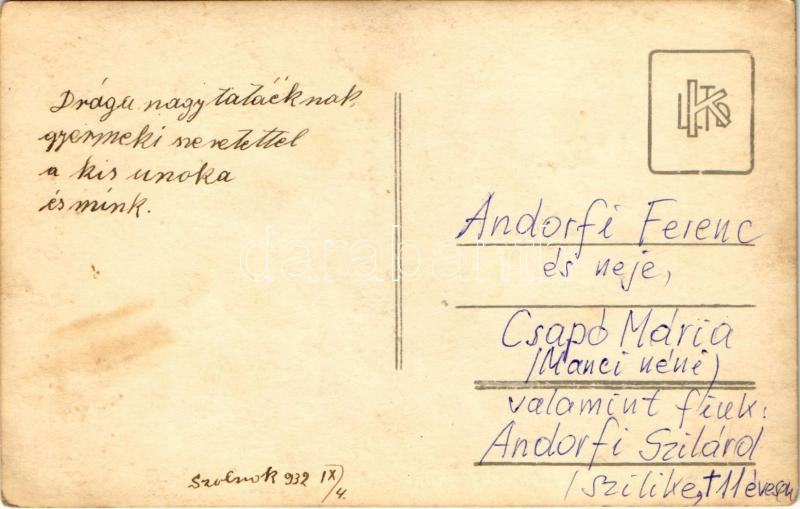 Drága nagytatáéknak
gyermeki szeretettel
a kis unoka
és mink.
Szolnok 932 IX/4.
Andorfi Ferenc
és neje,
Csapó Mária
(Manci néni)
valamint fiuk:
Andorfi Szilárd
(Szilike, †11 évesen
darabanth